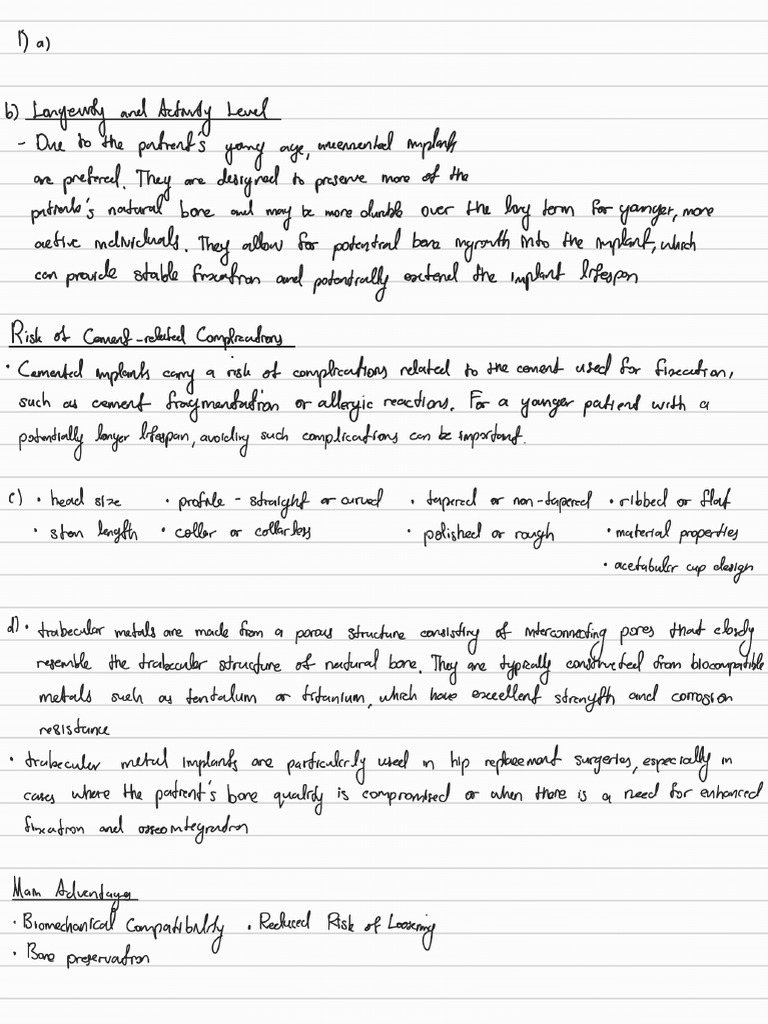 1) a)
b) Longevity and Activity Level
- Due to the patient's young age, uncemented implants
are preferred. They are designed to preserve more of the
patients's natural bone and may be more durable over the long term for younger, more
active individuals. They allow for potential bone ingrowth into the implant, which
can provide stable fixation and potentially extend the implant lifespan
Risk of Cement-related Complications
• Cemented implants carry a risk of complications related to the cement used for fixation,
such as cement fragmentation or allergic reactions. For a younger patient with a
potentially longer lifespan, avoiding such complications can be important.
c) • head size • profile - straight or curved • tapered or non-tapered • ribbed or flat
• stem length • collar or collarless • polished or rough • material properties
• acetabular cup design
d) • trabecular metals are made from a porous structure consisting of interconnecting pores that closely
resemble the trabecular structure of natural bone. They are typically constructed from biocompatible
metals such as tantalum or titanium, which have excellent strength and corrosion
resistance
• trabecular metal implants are particularly used in hip replacement surgeries, especially in
cases where the patient's bone quality is compromised or when there is a need for enhanced
fixation and osseointegration
Main Advantages
• Biomechanical Compatibility • Reduced Risk of Loosening
• Bone preservation